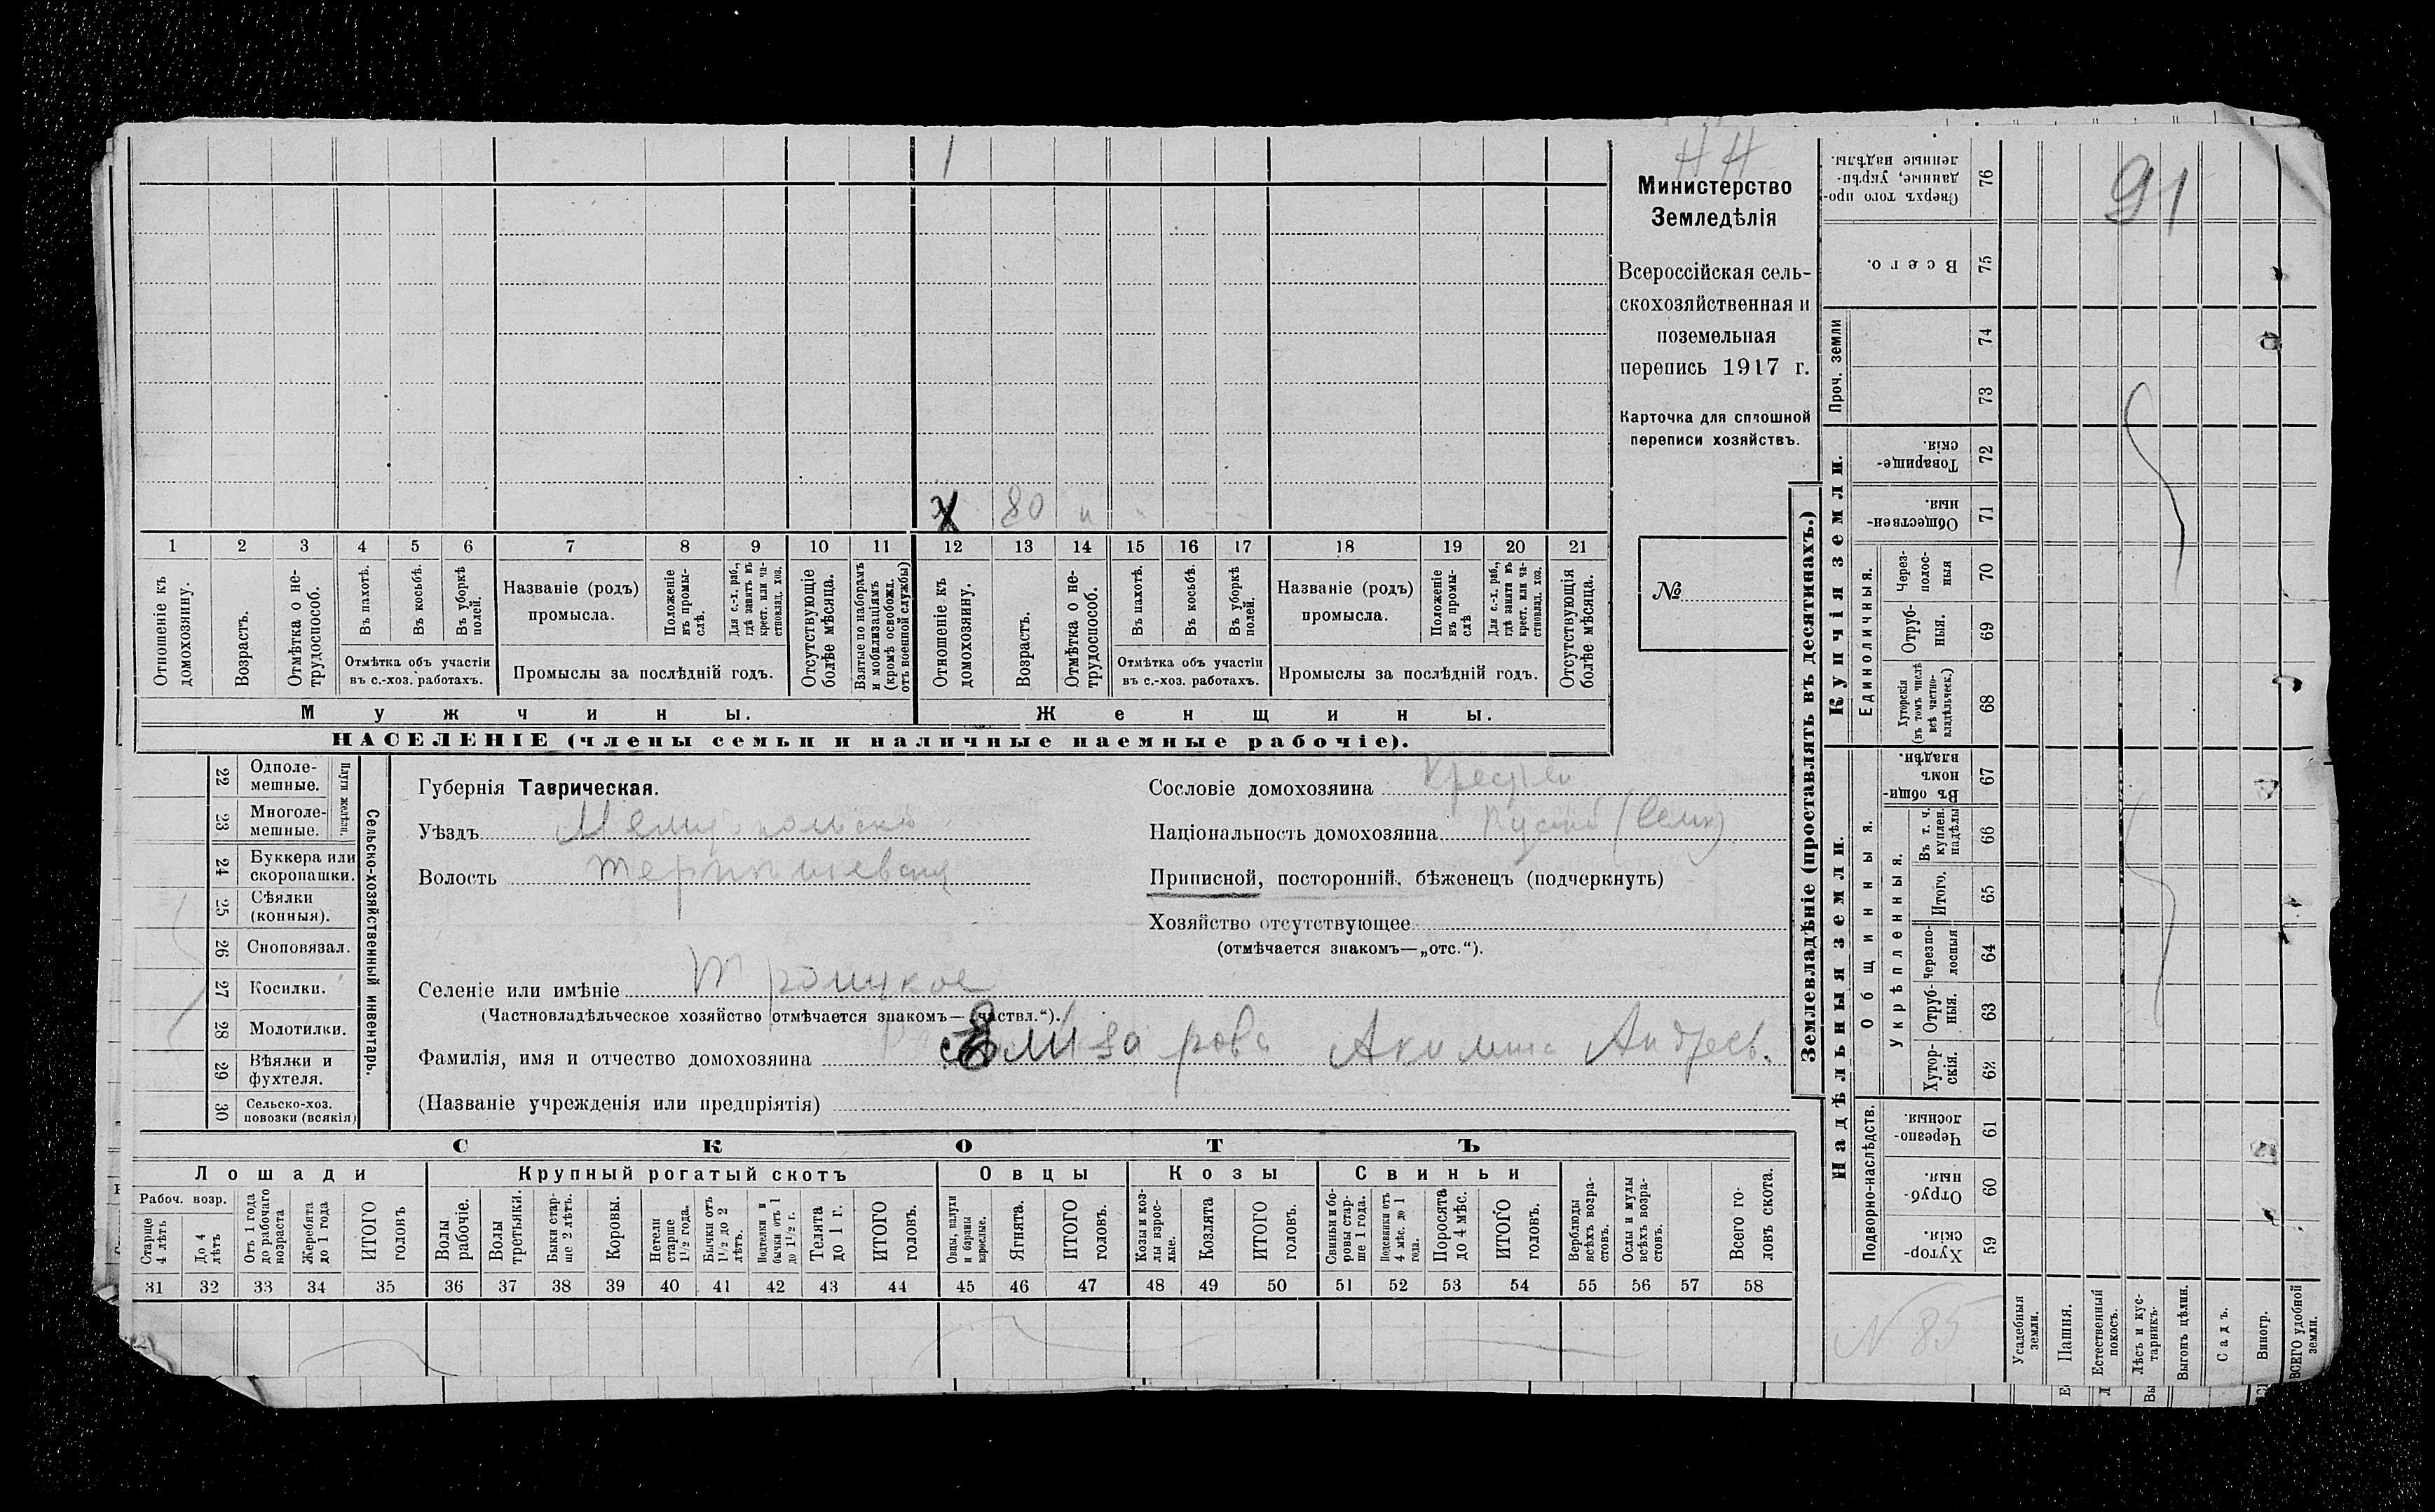 1
НН
91
Министерство
Земледѣлія
Всероссійская сель-
скохозяйственная и
поземельная
перепись 1917 г.
Карточка для сплошной
переписи хозяйствъ.
№
х 80 н
1 2 3 4 5 6 7 8 9 10 11 12 13 14 15 16 17 18 19 20 21
Отношеніе къ домохозяину.
Возрастъ.
Отмѣтка о не-трудоспособ.
Въ пахотѣ.
Въ косьбѣ.
Въ уборкѣ полей.
Отмѣтка объ участіи
въ с.-хоз. работахъ.
Названіе (родъ)
промысла.
Положеніе въ промы-слѣ.
Для с.-х. раб., гдѣ занятъ въ крест. или ча-стновлад. хоз.
Промыслы за послѣдній годъ.
Отсутствующіе болѣе мѣсяца.
Взятые по наборамъ и мобилизаціямъ (кромѣ освобожд. отъ военной службы)
Отношеніе къ домохозяину.
Возрастъ.
Отмѣтка о не-трудоспособ.
Въ пахотѣ.
Въ косьбѣ.
Въ уборкѣ полей.
Отмѣтка объ участіи
въ с.-хоз. работахъ.
Названіе (родъ)
промысла.
Положеніе въ промы-слѣ
Для с.-х. раб., гдѣ занята въ крест. или ча-стновлад. хоз.
Промыслы за послѣдній годъ.
Отсутствующія болѣе мѣсяца.
Мужчины.
Женщины.
НАСЕЛЕНІЕ (члены семьи и наличные наемные рабочіе).
22 Одноле-мешные.
23 Многоле-мешные.
Плуги желѣзн.
24 Буккера или скоропашки.
25 Сѣялки (конныя).
26 Сноповязал.
27 Косилки.
28 Молотилки.
29 Вѣялки и фухтеля.
30 Сельско-хоз. повозки (всякія)
Сельско-хозяйственный инвентарь.
Губернія Таврическая.
Уѣздъ Мелитопольскій
Волость
Селеніе или имѣніе Троицкое
(Частновладѣльческое хозяйство отмѣчается знакомъ—„частвл.“).
Фамилія, имя и отчество домохозяина Елизарова Акулина Андреев.
(Названіе учрежденія или предпріятія)
Сословіе домохозяина Крест
Національность домохозяина
Приписной, посторонній, бѣженецъ (подчеркнуть)
Хозяйство отсутствующее
(отмѣчается знакомъ—„отс.“).
СКОТЪ
Лошади
Крупный рогатый скотъ
Овцы
Козы
Свиньи
Рабоч. возр.
Старше 4 лѣтъ
До 4 лѣтъ
Отъ 1 года до рабочаго возраста
Жеребята до 1 года
ИТОГО головъ
Волы рабочіе.
Волы третьяки.
Быки стар-ше 2 лѣтъ.
Коровы.
Нетели старше 1½ года.
Бычки отъ 1½ до 2 лѣтъ.
Подтелки и бычки отъ 1 до 1½ г.
Телята до 1 г.
ИТОГО головъ.
Овцы, валухи и бараны взрослые.
Ягнята.
ИТОГО головъ.
Козы и коз-лы взрос-лые.
Козлята
ИТОГО головъ.
Свиньи и бо-ровы стар-ше 1 года.
Подсвинки отъ 4 мѣс. до 1 года.
Поросята до 4 мѣс.
ИТОГО головъ.
Верблюды всѣхъ возра-стовъ.
Ослы и мулы всѣхъ возра-стовъ.
Всего го-ловъ скота.
31 32 33 34 35 36 37 38 39 40 41 42 43 44 45 46 47 48 49 50 51 52 53 54 55 56 57 58
Землевладѣніе (проставлять въ десятинахъ.)
Купчія земли.
Надѣльныя земли.
Сверхъ того про-данные, укрѣп-ленные надѣлы. 76
Всего. 75
Проч. земли
74
73
Товарище-скія. 72
Обществен-ныя. 71
Единоличныя.
Через-полос-ныя 70
Отруб-ныя. 69
Хуторскія (въ томъ числѣ всѣ частно-владѣльческ.) 68
Общинныя.
Въ общин-номъ владѣн. 67
Укрѣпленныя.
Въ т. ч. куплен. надѣлы 66
Итого. 65
Черезпо-лосныя 64
Отруб-ныя. 63
Хутор-скія. 62
Подворно-наслѣдств.
Черезпо-лосныя. 61
Отруб-ныя. 60
Хутор-скія. 59
N 85
Усадебныя земли.
Пашня.
Естественный покосъ.
Лѣсъ и кус-тарникъ.
Выгонъ цѣлин.
Садъ.
Виногр.
ВСЕГО удобной земли.